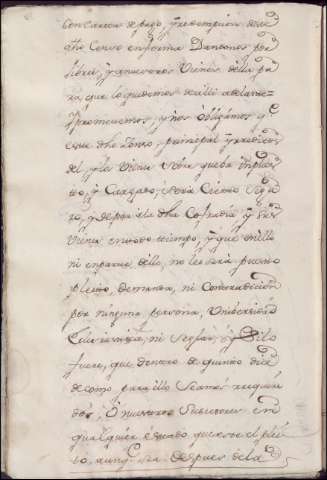 Con Carta de pago, y redempcion de este
dho Censo en forma Dandonos por
libres, y a nuestros Vienes de la pa
ga, que lo quedemos de alli adelante=
Y prometemos, y nos obligamos q.e
este dho Zenso, principal y reditos
del, y los Vienes sobre que ba impues
to, y Cargado, sera Cierto Segu
ro, y de paz a la dha Cofradia y sus
Vienes en todo tiempo, y que en ello
ni en parte dello, no les sera puesto
pleito demanda, ni Contradicion
por ninguna persona, Universidad
Eclesiastica, ni Seglar, y Si lo
fuere, que dentro de quinto dia
de como para ello Seamos requeri
dos, O nuestros Subcesores en
qualquier estado que este el plei
to, aunq.e sea despues de la